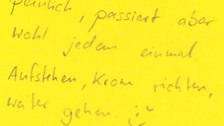 peinlich, passiert aber
wohl jedem einmal
Aufstehen, Krone richten,
weiter gehen. ;-)